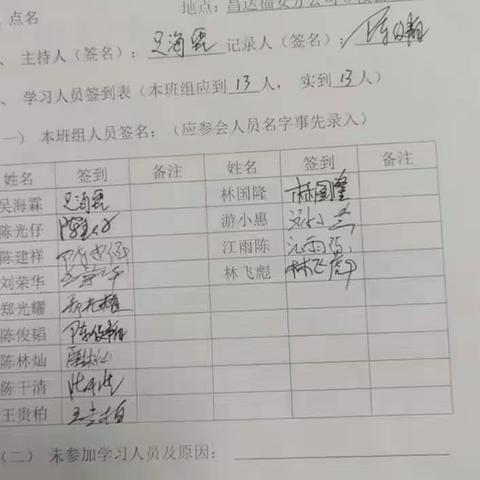 点名
地点：昌达福安分公司
主持人（签名）：吴海霖 记录人（签名）：陈俊韬
、学习人员签到表（本班组应到 13 人， 实到 13 人）
一） 本班组人员签名：（应参会人员名字事先录入）
姓名 签到 备注 姓名 签到 备注
吴海霖 吴海霖 林国隆 林国隆
陈光仔 陈光仔 游小惠 游小惠
陈建祥 陈建祥 江雨陈 江雨陈
刘荣华 刘荣华 林飞彪 林飞彪
郑光耀 郑光耀
陈俊韬 陈俊韬
陈林灿 陈林灿
陈干清 陈干清
王贵柏 王贵柏
（二） 未参加学习人员及原因：